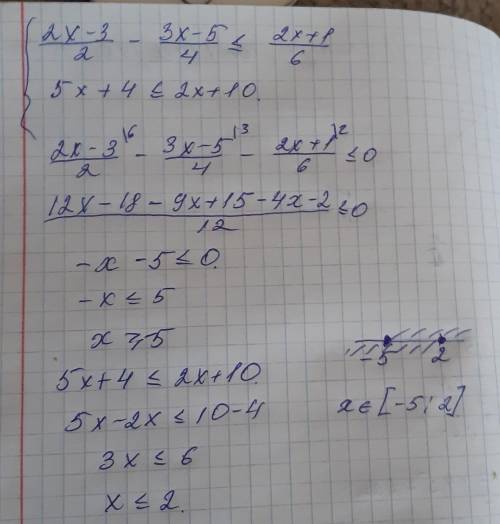 { (2x-3)/2 - (3x-5)/4 ≤ (2x+1)/6
5x+4 ≤ 2x+10.
(2x-3)/2 \6 - (3x-5)/4 \3 - (2x+1)/6 \2 ≤ 0
(12x-18-9x+15-4x-2)/12 ≤ 0
-x -5 ≤ 0.
-x ≤ 5
x ≥ 5
-5 2
5x+4 ≤ 2x+10.
x ∈ [-5; 2]
5x-2x ≤ 10-4
3x ≤ 6
x ≤ 2.